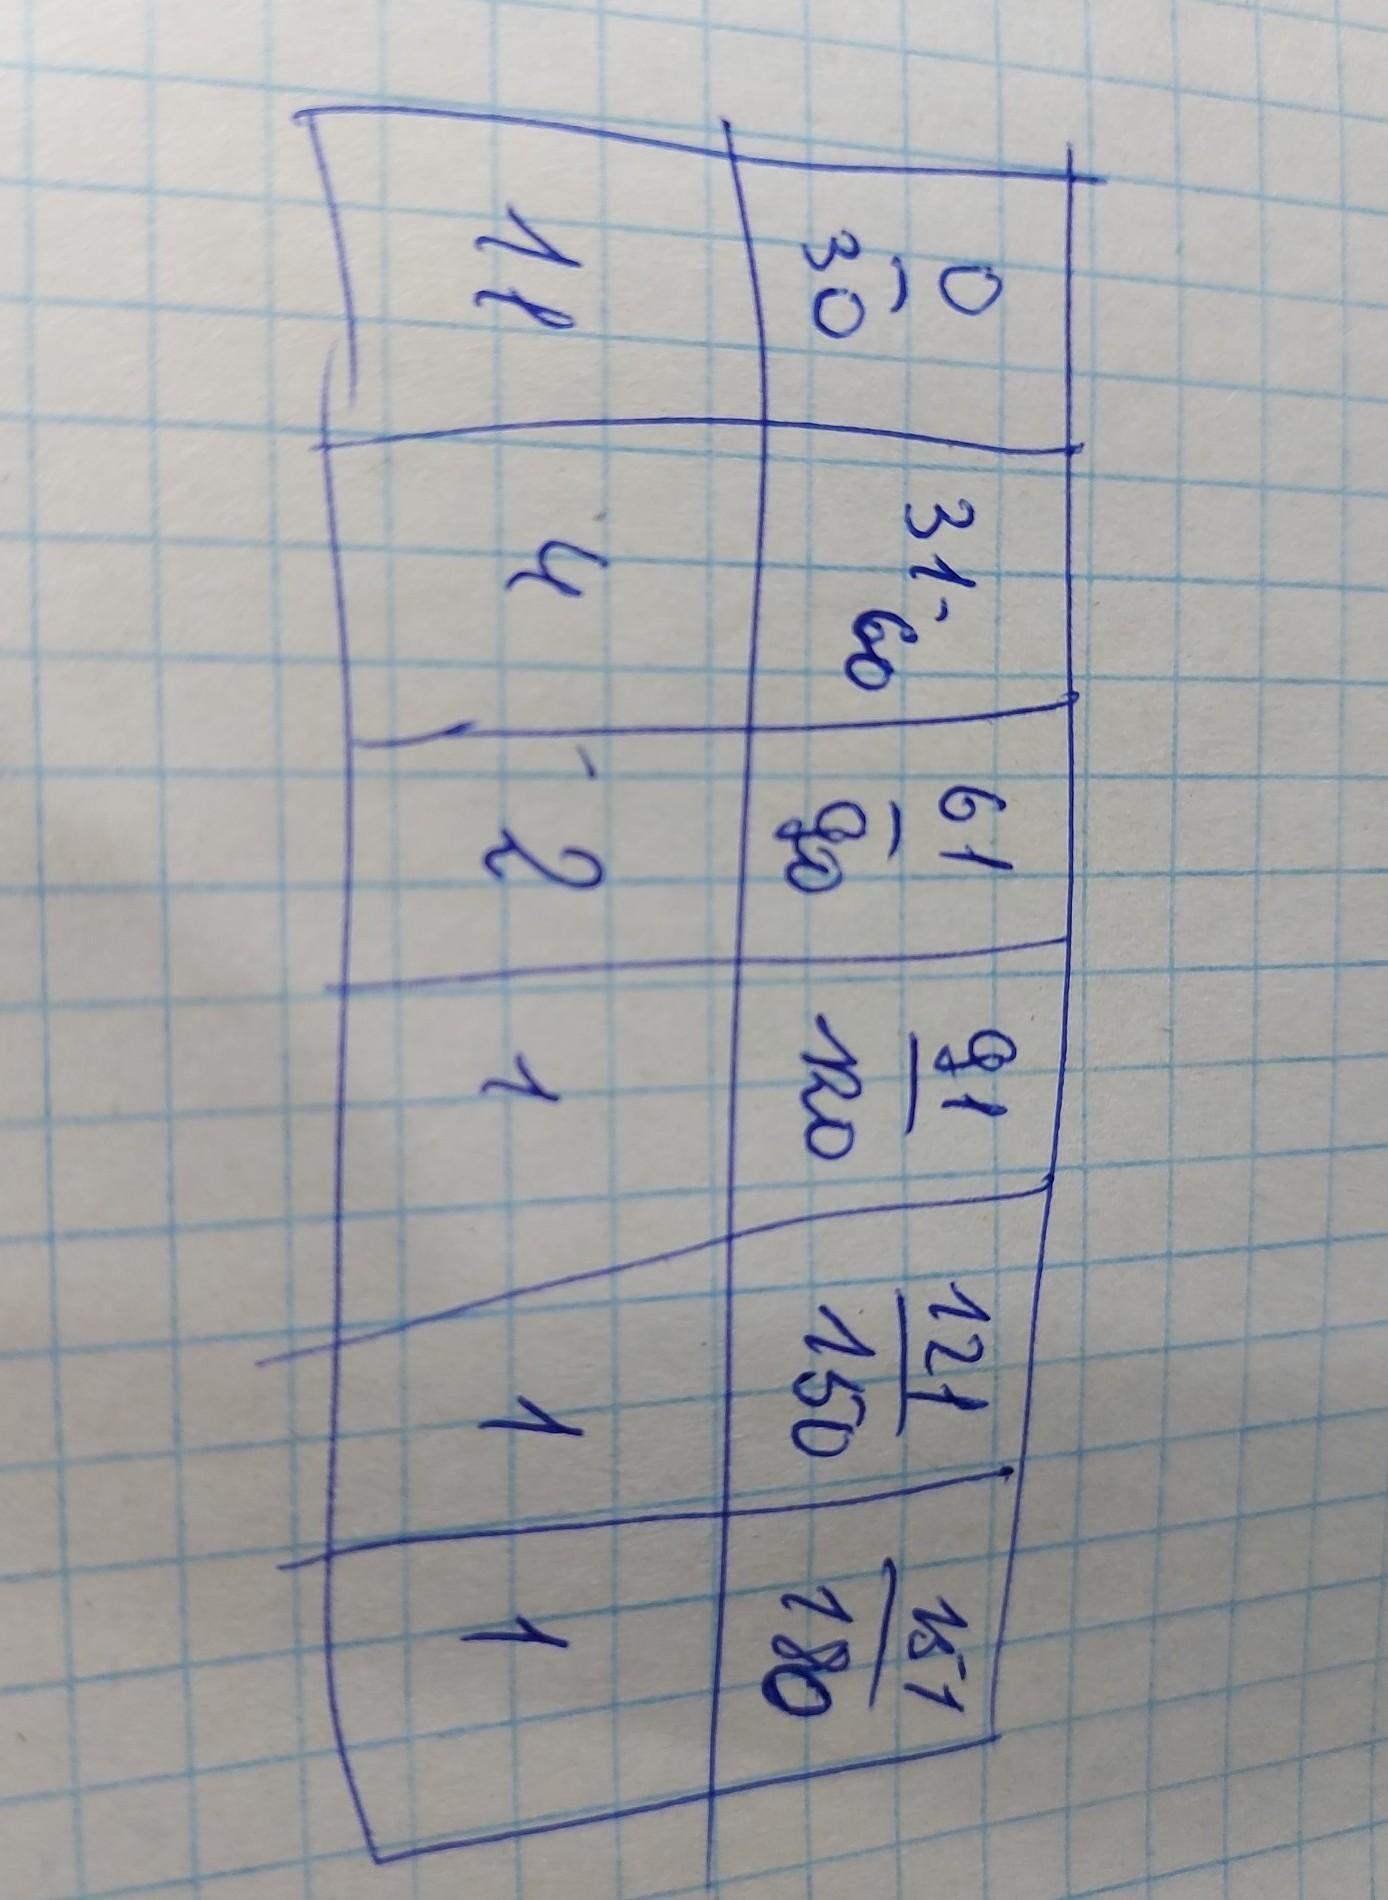 0 - 30 | 31-60 | 61 - 90 | 91 - 120 | 121 - 150 | 151 - 180
11 | 4 | 2 | 1 | 1 | 1